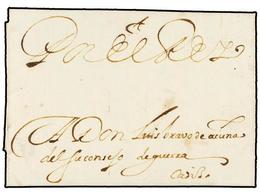 Por el Rey
A Don Luis bravo de acuna
del su consejo de guerra
Cadiz